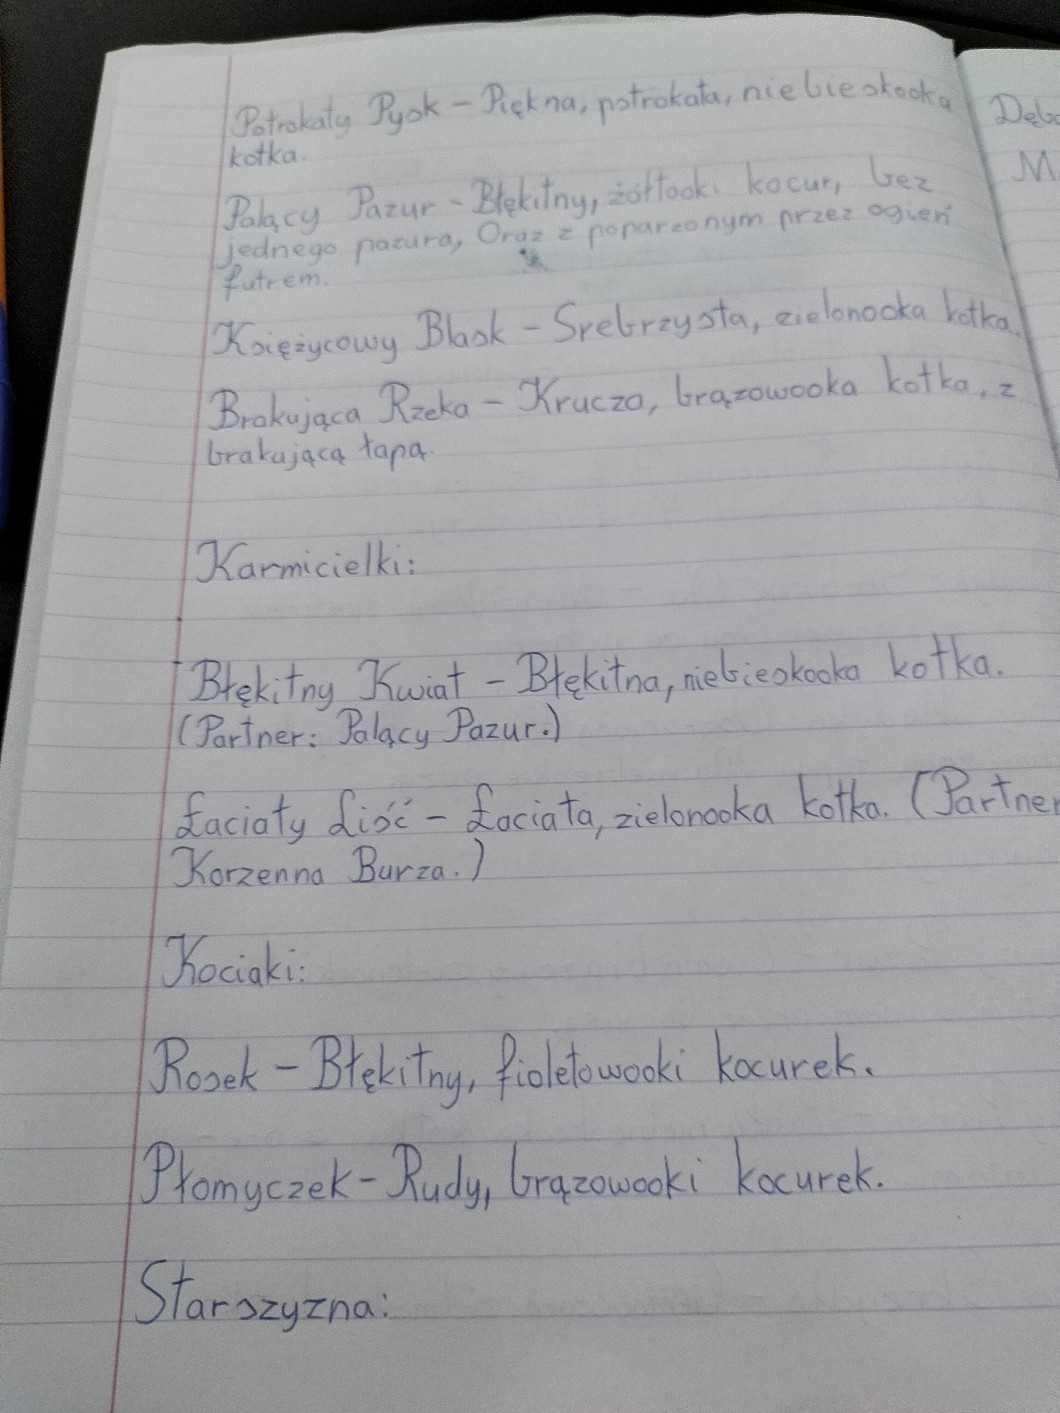 Potrokaty Pysk – Piękna, potrokata, niebieskooka
kotka.
Palący Pazur – Błękitny, żółtooki kocur, bez
jednego pazura, Oraz z poparzonym przez ogień
futrem.
Księżycowy Blask – Srebrzysta, zielonooka kotka.
Brakująca Rzeka – Krucza, brązowooka kotka, z
brakującą łapą.
Karmicielki:
Błękitny Kwiat – Błękitna, niebieskooka kotka.
(Partner: Palący Pazur.)
Łaciaty Liść – Łaciata, zielonooka kotka. (Partner
Korzenna Burza.)
Kociaki:
Rosek – Błękitny, fioletowooki kocurek.
Płomyczek – Rudy, brązowooki kocurek.
Starszyzna:
M